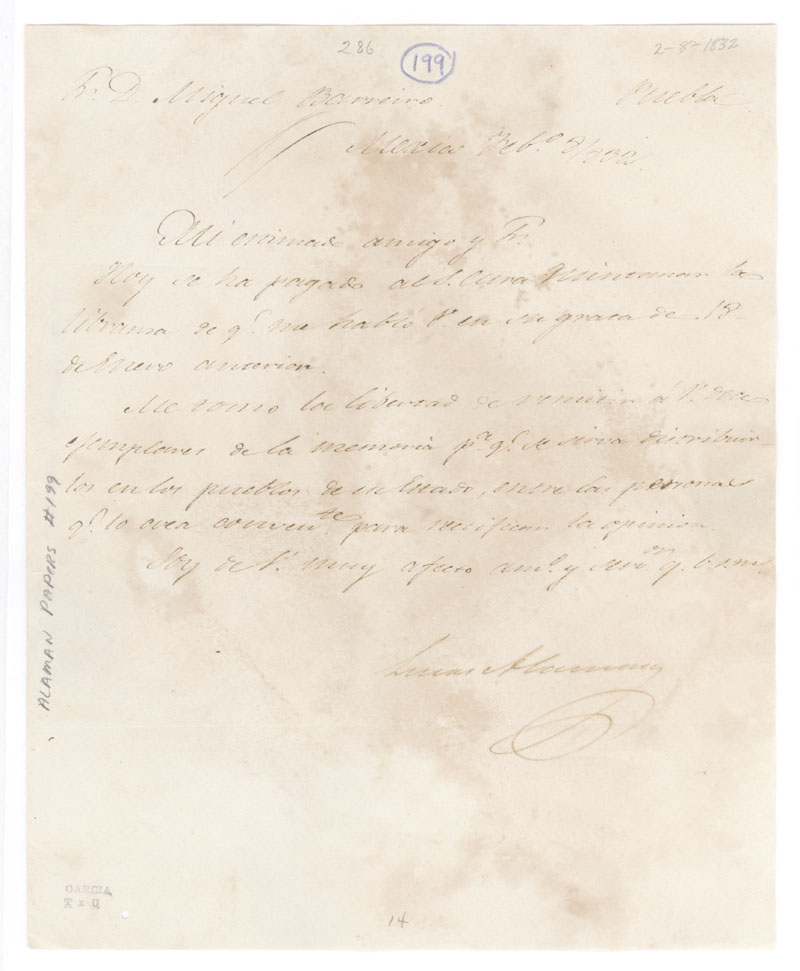 286
199
2-8-1832
Sr. D. Miguel Barreiro. Puebla
Mexico Feb.o 8/832.
Mi estimado amigo y Sr.
Hoy se ha pagado al S. Cura Quintanar la
libranza de q.e me habló V. en su grata de 18
de Enero anterior.
Me tomo la libertad de remitir á V. doce
ejemplares de la memoria p.a q.e se sirva distribuir-
los en los pueblos de ese Estado, entre las personas
q.e lo crea conven.te para rectificar la opinion.
Soy de V. muy afecto am.o y serv.or q. b. s. m.
Lucas Alaman
ALAMAN PAPERS #199
GARCIA
14